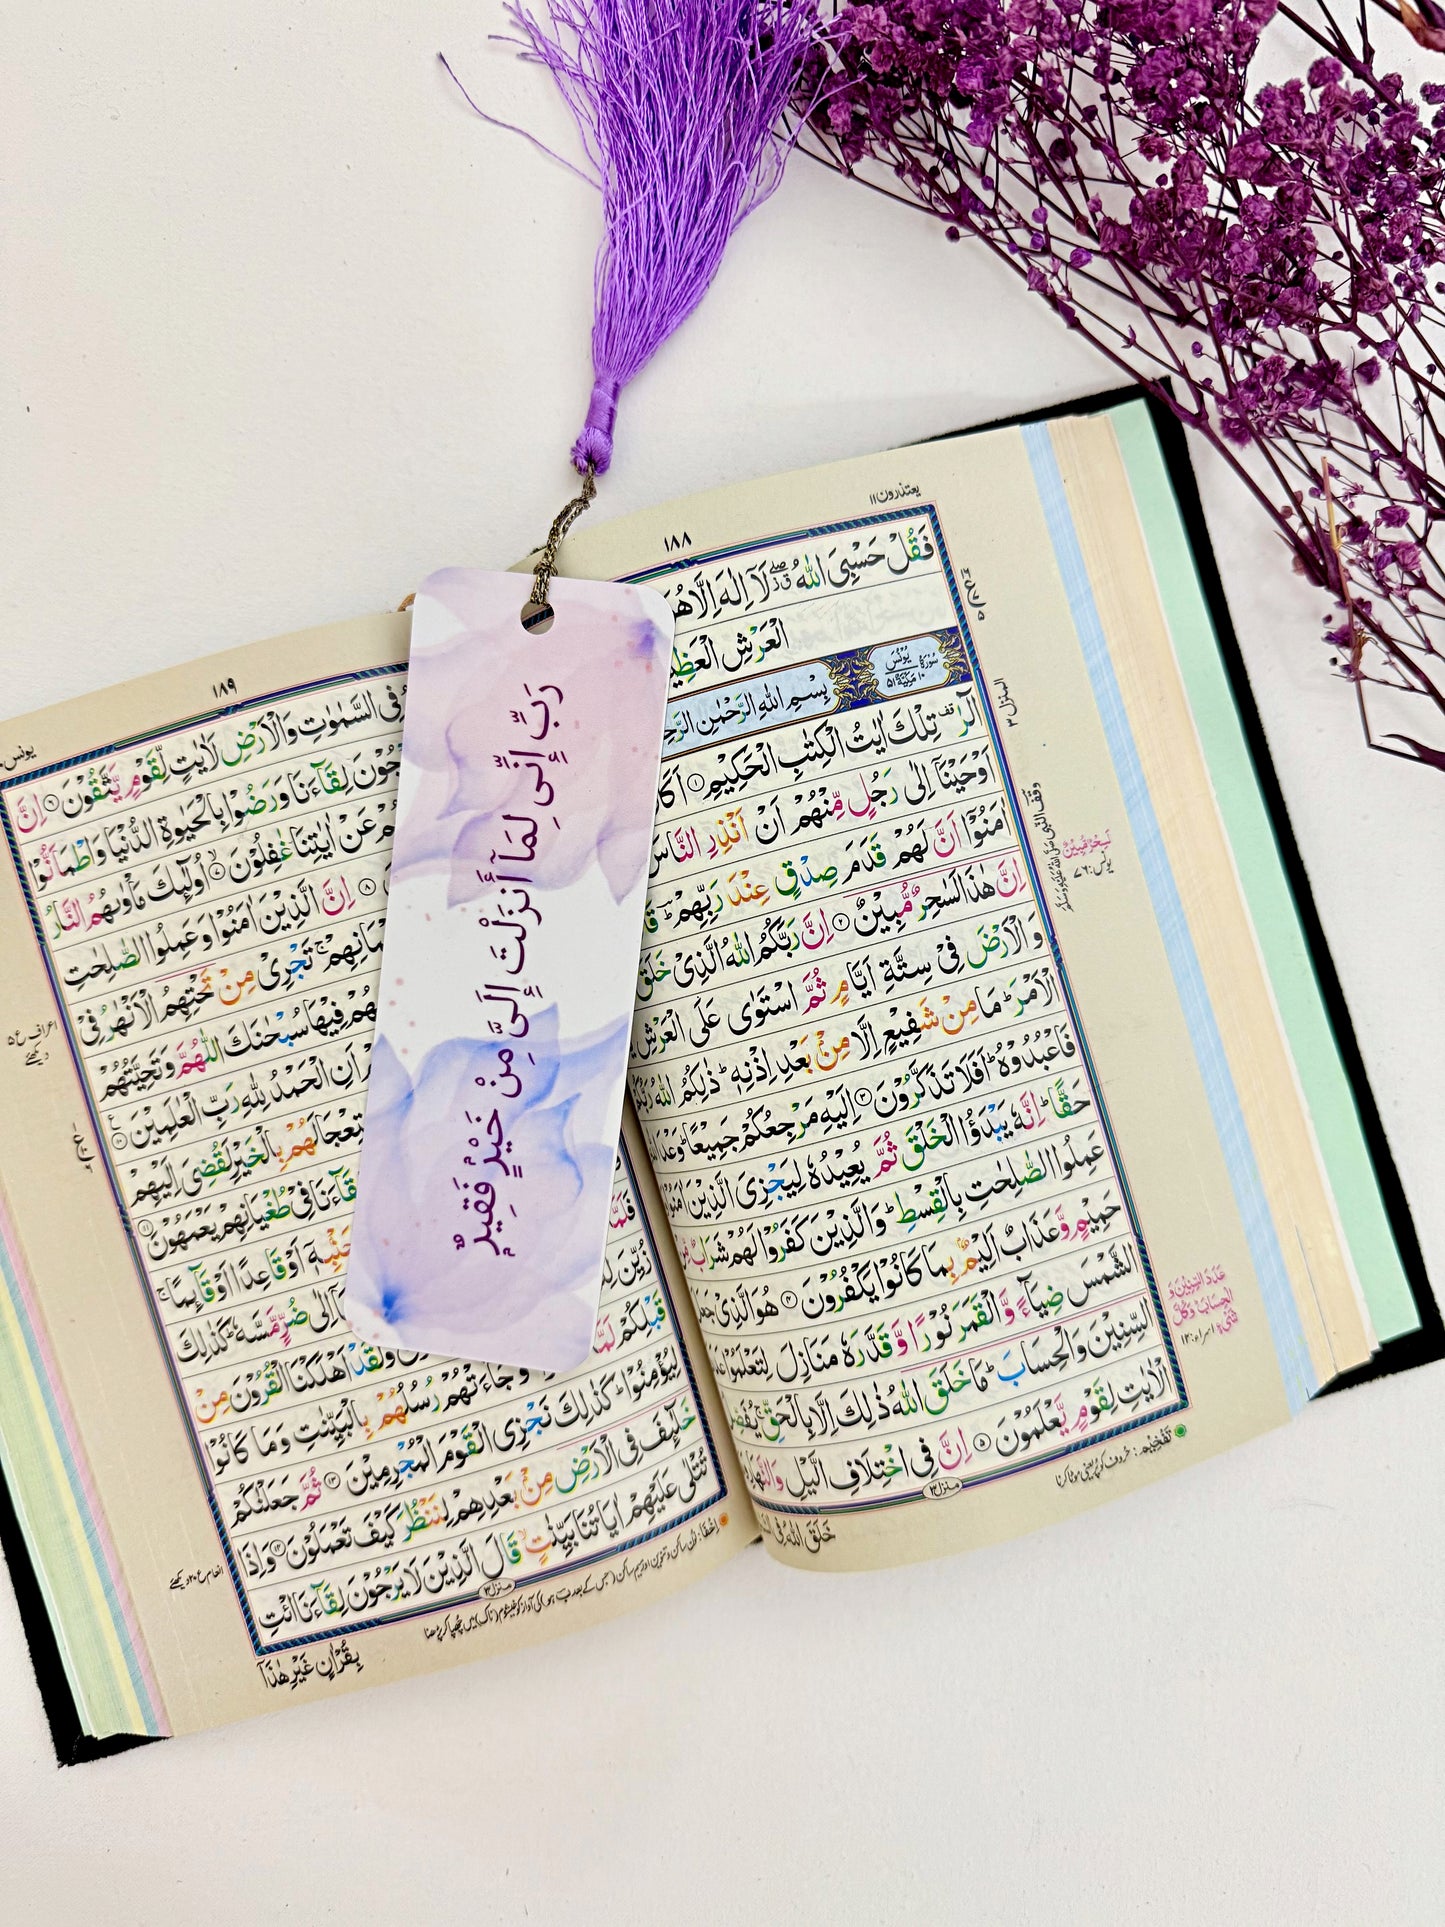 رَبِّ إِنِّي لِمَآ أَنزَلْتَ إِلَيَّ مِنْ خَيْرٍ فَقِيرٌ
١٨٨
يعتذرون١١
فَقُلْ حَسْبِيَ اللّٰهُ لَآ اِلٰهَ اِلَّا هُوَ
الْعَرْشِ الْعَظِيْمِ
سُوْرَةُ يُوْنُسَ
بِسْمِ اللّٰهِ الرَّحْمٰنِ الرَّحِيْمِ
الٓرٰ تِلْكَ اٰيٰتُ الْكِتٰبِ الْحَكِيْمِ ١ اَكَانَ
اَوْحَيْنَآ اِلٰى رَجُلٍ مِّنْهُمْ اَنْ اَنْذِرِ النَّاسَ
اٰمَنُوْٓا اَنَّ لَهُمْ قَدَمَ صِدْقٍ عِنْدَ رَبِّهِمْ
اِنَّ هٰذَا لَسٰحِرٌ مُّبِيْنٌ ٢ اِنَّ رَبَّكُمُ اللّٰهُ الَّذِيْ خَلَقَ
وَالْاَرْضَ فِيْ سِتَّةِ اَيَّامٍ ثُمَّ اسْتَوٰى عَلَى الْعَرْشِ
الْاَمْرَ مَا مِنْ شَفِيْعٍ اِلَّا مِنْۢ بَعْدِ اِذْنِهٖ ذٰلِكُمُ اللّٰهُ رَبُّكُمْ
فَاعْبُدُوْهُ اَفَلَا تَذَكَّرُوْنَ ٣ اِلَيْهِ مَرْجِعُكُمْ جَمِيْعًا وَعْدَ اللّٰهِ
حَقًّا اِنَّهٗ يَبْدَؤُا الْخَلْقَ ثُمَّ يُعِيْدُهٗ لِيَجْزِيَ الَّذِيْنَ اٰمَنُوْا
عَمِلُوا الصّٰلِحٰتِ بِالْقِسْطِ وَالَّذِيْنَ كَفَرُوْا لَهُمْ شَرَابٌ مِّنْ
حَمِيْمٍ وَّعَذَابٌ اَلِيْمٌۢ بِمَا كَانُوْا يَكْفُرُوْنَ ٤ هُوَ الَّذِيْ جَعَلَ
الشَّمْسَ ضِيَآءً وَّالْقَمَرَ نُوْرًا وَّقَدَّرَهٗ مَنَازِلَ لِتَعْلَمُوْا عَدَدَ
السِّنِيْنَ وَالْحِسَابَ مَا خَلَقَ اللّٰهُ ذٰلِكَ اِلَّا بِالْحَقِّ يُفَصِّلُ
الْاٰيٰتِ لِقَوْمٍ يَّعْلَمُوْنَ ٥ اِنَّ فِي اخْتِلَافِ الَّيْلِ وَالنَّهَارِ
خَلَقَ اللّٰهُ فِى
١٨٩
يونس
فِى السَّمٰوٰتِ وَالْاَرْضِ لَاٰيٰتٍ لِّقَوْمٍ يَّتَّقُوْنَ ٦ اِنَّ
يَرْجُوْنَ لِقَآءَنَا وَرَضُوْا بِالْحَيٰوةِ الدُّنْيَا وَاطْمَاَنُّوْا
هُمْ عَنْ اٰيٰتِنَا غٰفِلُوْنَ ٧ اُولٰٓئِكَ مَاْوٰىهُمُ النَّارُ
٨ اِنَّ الَّذِيْنَ اٰمَنُوْا وَعَمِلُوا الصّٰلِحٰتِ
بِاِيْمَانِهِمْ تَجْرِيْ مِنْ تَحْتِهِمُ الْاَنْهٰرُ فِيْ
فِيْهَا سُبْحٰنَكَ اللّٰهُمَّ وَتَحِيَّتُهُمْ
اَنِ الْحَمْدُ لِلّٰهِ رَبِّ الْعٰلَمِيْنَ ١٠
اسْتِعْجَالَهُمْ بِالْخَيْرِ لَقُضِيَ اِلَيْهِمْ
لِقَآءَنَا فِيْ طُغْيَانِهِمْ يَعْمَهُوْنَ ١١
لِجَنْۢبِهٖٓ اَوْ قَاعِدًا اَوْ قَآئِمًا
اِلٰى ضُرٍّ مَّسَّهٗ كَذٰلِكَ زُيِّنَ
وَلَقَدْ اَهْلَكْنَا الْقُرُوْنَ مِنْ قَبْلِكُمْ لَمَّا
وَجَآءَتْهُمْ رُسُلُهُمْ بِالْبَيِّنٰتِ وَمَا كَانُوْا
لِيُؤْمِنُوْا كَذٰلِكَ نَجْزِي الْقَوْمَ الْمُجْرِمِيْنَ ١٣ ثُمَّ جَعَلْنٰكُمْ
خَلٰٓئِفَ فِى الْاَرْضِ مِنْۢ بَعْدِهِمْ لِنَنْظُرَ كَيْفَ تَعْمَلُوْنَ ١٤ وَاِذَا
تُتْلٰى عَلَيْهِمْ اٰيَاتُنَا بَيِّنٰتٍ قَالَ الَّذِيْنَ لَا يَرْجُوْنَ لِقَآءَنَا ائْتِ
بِقُرْاٰنٍ غَيْرِ هٰذَآ